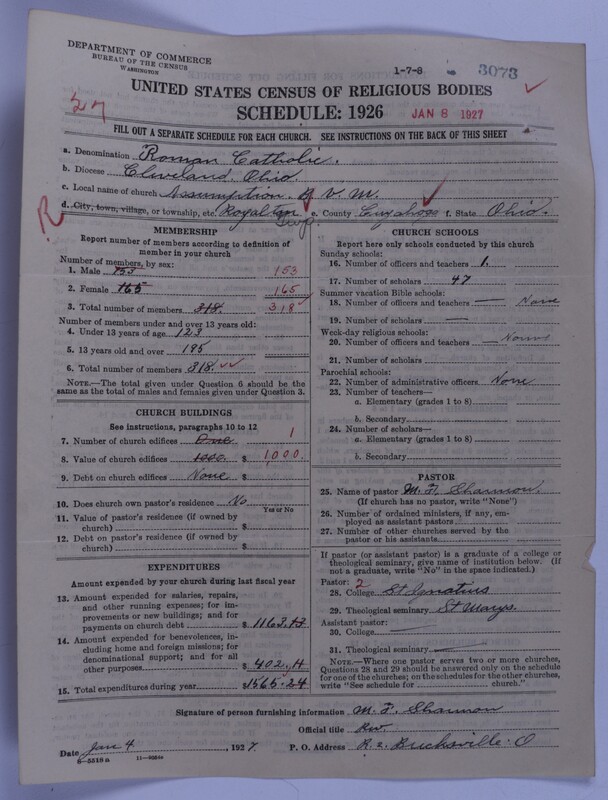 DEPARTMENT OF COMMERCE
BUREAU OF THE CENSUS
WASHINGTON
1-7-8
3073
UNITED STATES CENSUS OF RELIGIOUS BODIES
27
SCHEDULE: 1926
JAN 8 1927
FILL OUT A SEPARATE SCHEDULE FOR EACH CHURCH. SEE INSTRUCTIONS ON THE BACK OF THIS SHEET
a. Denomination Roman Catholic.
b. Diocese Cleveland, Ohio.
c. Local name of church Assumption. B V. M.
R
d. City, town, village, or township, etc. Royalton Twp. e. County Cuyahoga f. State Ohio.
MEMBERSHIP
Report number of members according to definition of member in your church
Number of members, by sex:
1. Male 153 153
2. Female 165 165
3. Total number of members 318. 318
Number of members under and over 13 years old:
4. Under 13 years of age 123
5. 13 years old and over 195
6. Total number of members 318.
NOTE.—The total given under Question 6 should be the
same as the total of males and females given under Question 3.
CHURCH BUILDINGS
See instructions, paragraphs 10 to 12
7. Number of church edifices One 1
8. Value of church edifices 1000. $ 1,000
9. Debt on church edifices None $
10. Does church own pastor's residence No
Yes or No
11. Value of pastor's residence (if owned by
church) $
12. Debt on pastor's residence (if owned by
church) $
EXPENDITURES
Amount expended by your church during last fiscal year
13. Amount expended for salaries, repairs,
and other running expenses; for im-
provements or new buildings; and for
payments on church debt $ 1163.13
14. Amount expended for benevolences, in-
cluding home and foreign missions; for
denominational support; and for all
other purposes $ 402.11
15. Total expenditures during year $1565.24
CHURCH SCHOOLS
Report here only schools conducted by this church
Sunday schools:
16. Number of officers and teachers 1.
17. Number of scholars 47
Summer vacation Bible schools:
18. Number of officers and teachers — None
19. Number of scholars —
Week-day religious schools:
20. Number of officers and teachers — None
21. Number of scholars
Parochial schools:
22. Number of administrative officers None
23. Number of teachers—
a. Elementary (grades 1 to 8)
b. Secondary
24. Number of scholars—
a. Elementary (grades 1 to 8)
b. Secondary
PASTOR
25. Name of pastor M. F. Shannon.
(If church has no pastor, write "None")
26. Number of ordained ministers, if any, em-
ployed as assistant pastors
27. Number of other churches served by the
pastor or his assistants
If pastor (or assistant pastor) is a graduate of a college or
theological seminary, give name of institution below. (If
not a graduate, write "No" in the space indicated.)
Pastor: 2
28. College St Ignatius
29. Theological seminary St Marys
Assistant pastor:
30. College —
31. Theological seminary —
NOTE.—Where one pastor serves two or more churches,
Questions 28 and 29 should be answered only on the schedule
for one of the churches; on the schedules for the other churches,
write "See schedule for church."
Signature of person furnishing information M. F. Shannon
Official title Rev.
Date Jan 4, 1927. P. O. Address R. 2. Brecksville. O